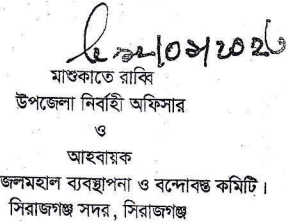 মাশুকাতে রাব্বি
উপজেলা নির্বাহী অফিসার
ও
আহবায়ক
জলমহাল ব্যবস্থাপনা ও বন্দোবস্ত কমিটি।
সিরাজগঞ্জ সদর, সিরাজগঞ্জ